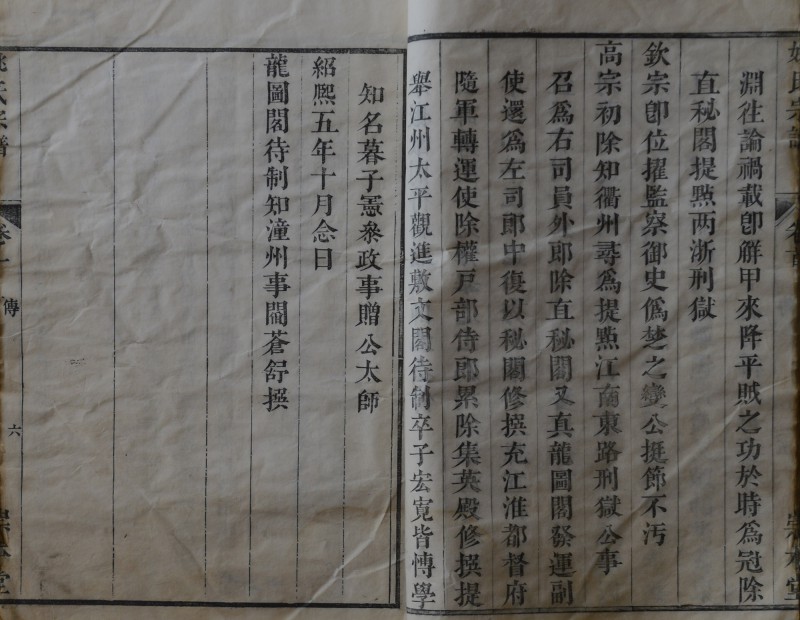 淵徃諭禍載卽解甲來降平賊之功於時爲冠除
直秘閣提㸃两浙刑獄
欽宗卽位擢監察御史僞楚之變公挺節不汚
高宗初除知衢州尋爲提㸃江南東路刑獄公事
召爲右司員外郎除直秘閣又真龍圖閣發運副
使還爲左司郎中復以秘閣修撰充江淮都督府
隨軍轉運使除權戸部侍郎累除集英殿修撰提
舉江州太平觀進敷文閣待制卒子宏寛皆愽學
知名暮子憲叅政事贈公太師
紹熙五年十月念日
龍圖閣待制知潼州事閻蒼舒撰
姚氏宗譜
卷一
傳
六